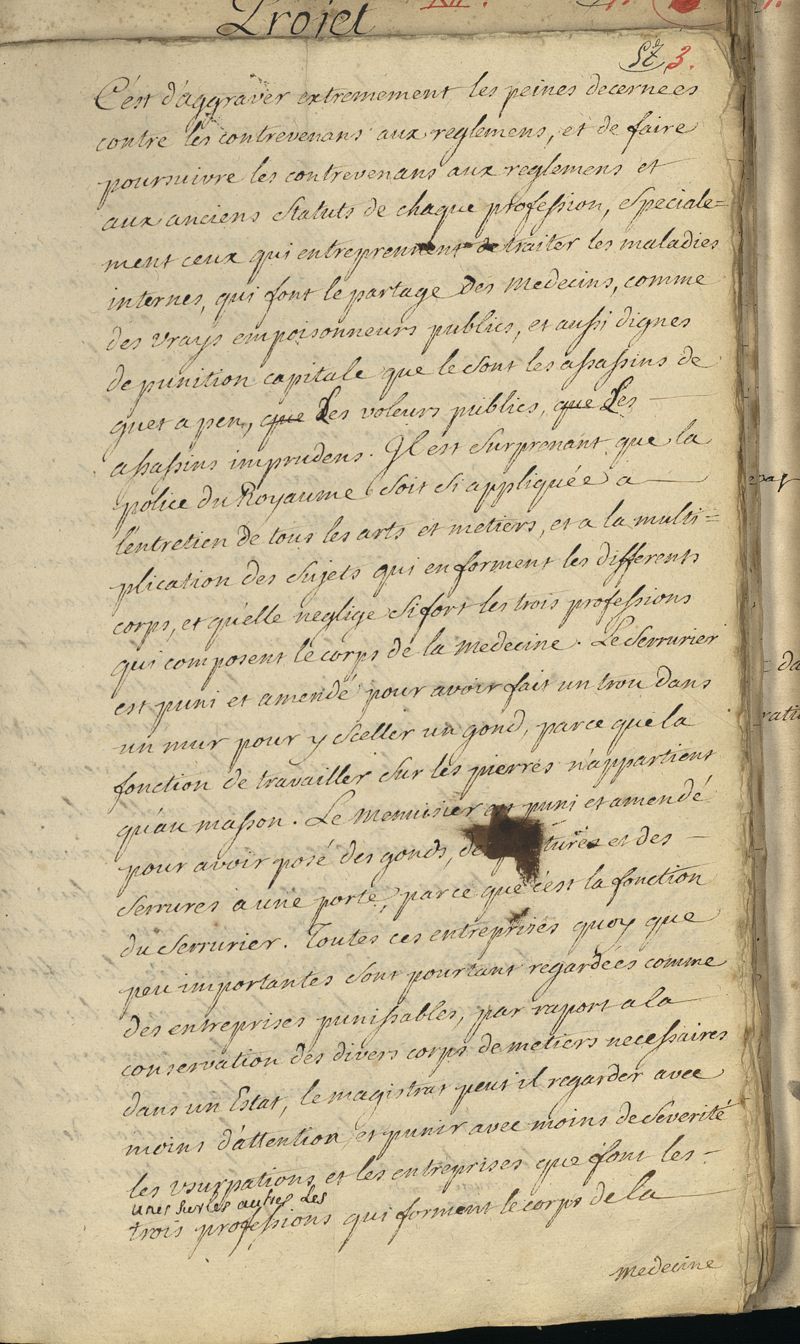 Projet
XII.
3.
C'est d'aggraver extremement les peines decernées
contre les contrevenans aux reglemens, et de faire
poursuivre les contrevenans aux reglemens et
aux anciens Statuts de chaque profession, Speciale=
ment ceux qui entreprennent de traiter les maladies
internes, qui font le partage Des Medecins, comme
des vrays empoisonneurs publics, et aussi dignes
de punition capitale que le sont les assassins de
guet a pen, que Les voleurs publics, que Les
assassins imprudens. Il est Surprenant que la
police du Royaume Soit Si appliquée a
l'entretien de tous les arts et metiers, et a la multi=
plication des Sujets qui en forment les differents
corps, et qu'elle neglige Si fort les trois professions
qui composent le corps de la Medecine. Le Serrurier
est puni et amendé pour avoir fait un trou dans
un mur pour y Sceller un gond, parce que la
fonction de travailler Sur les pierres n'appartient
qu'au masson. Le Menuisier est puni et amendé
pour avoir posé des gonds, de tures et des
Serrures a une porte, parce que c'est la fonction
du Serrurier. Toutes ces entreprises quoy que
peu importantes Sont pourtant regardées comme
des entreprises punissables, par raport a la
conservation des divers corps de metiers necessaires
dans un Estat, le magistrat peut il regarder avec
moins d'attention et punir avec moins de Severité
les usurpations et les entreprises que font les
unes sur les autres les
trois professions qui forment le corps de la
medecine